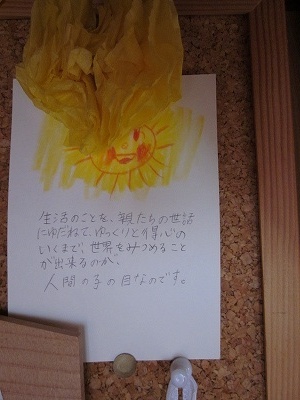 生活のことを、親たちの世話
にゆだねて、ゆっくりと得心の
いくまで、世界をみつめること
が出来るのが、
人間の子の目なのです。